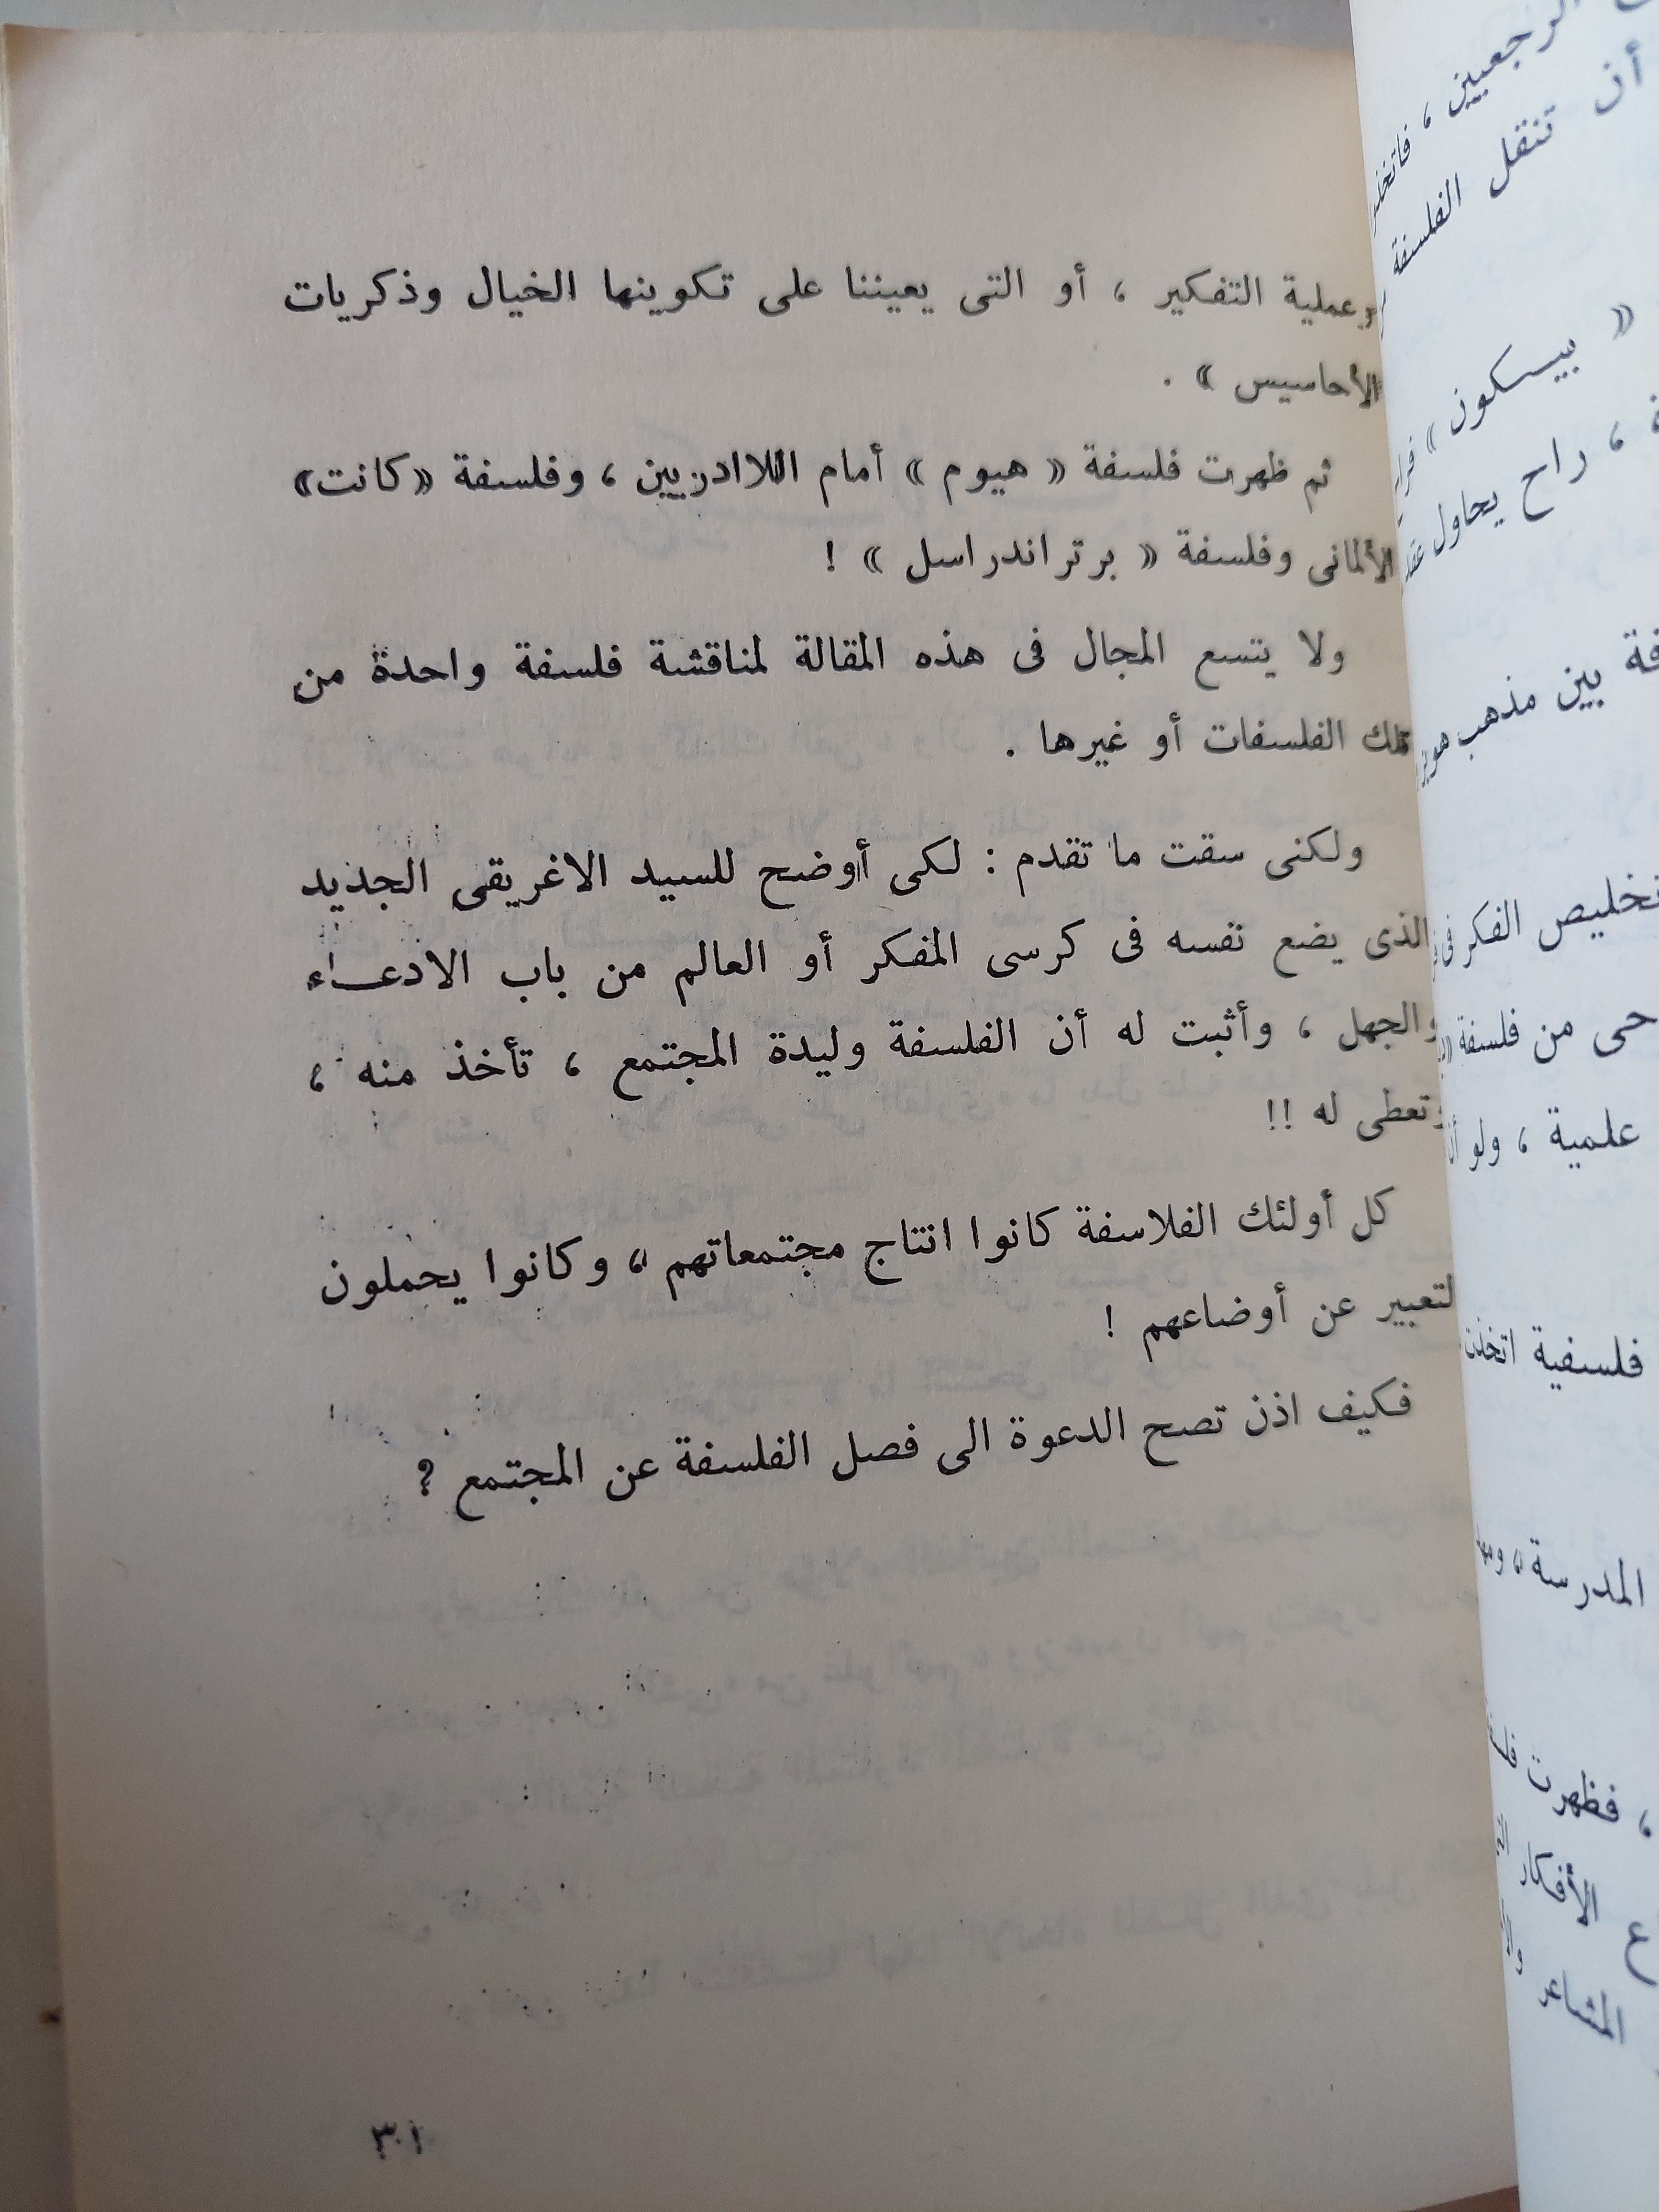 وعملية التفكير ، أو التى يعيننا على تكوينها الخيال وذكريات
الأحاسيس » .
ثم ظهرت فلسفة « هيوم » أمام اللاادريين ، وفلسفة «كانت»
الألمانى وفلسفة « برتراندراسل » !
ولا يتسع المجال فى هذه المقالة لمناقشة فلسفة واحدة من
تلك الفلسفات أو غيرها .
ولكنى سقت ما تقدم : لكى أوضح للسيد الاغريقى الجديد
الذى يضع نفسه فى كرسى المفكر أو العالم من باب الادعاء
والجهل ، وأثبت له أن الفلسفة وليدة المجتمع ، تأخذ منه ،
وتعطى له !!
كل أولئك الفلاسفة كانوا انتاج مجتمعاتهم ، وكانوا يحملون
لتعبير عن أوضاعهم !
فكيف اذن تصح الدعوة الى فصل الفلسفة عن المجتمع ؟
الرجعيين ،
أن تنقل الفلسفة
« بيسكون »
، راح يحاول
بين مذهب
تخليص الفكر فى
من فلسفة
علمية ، ولو
فلسفية اتخذت
المدرسة ،
، فظهرت
الأفكار
المشاعر